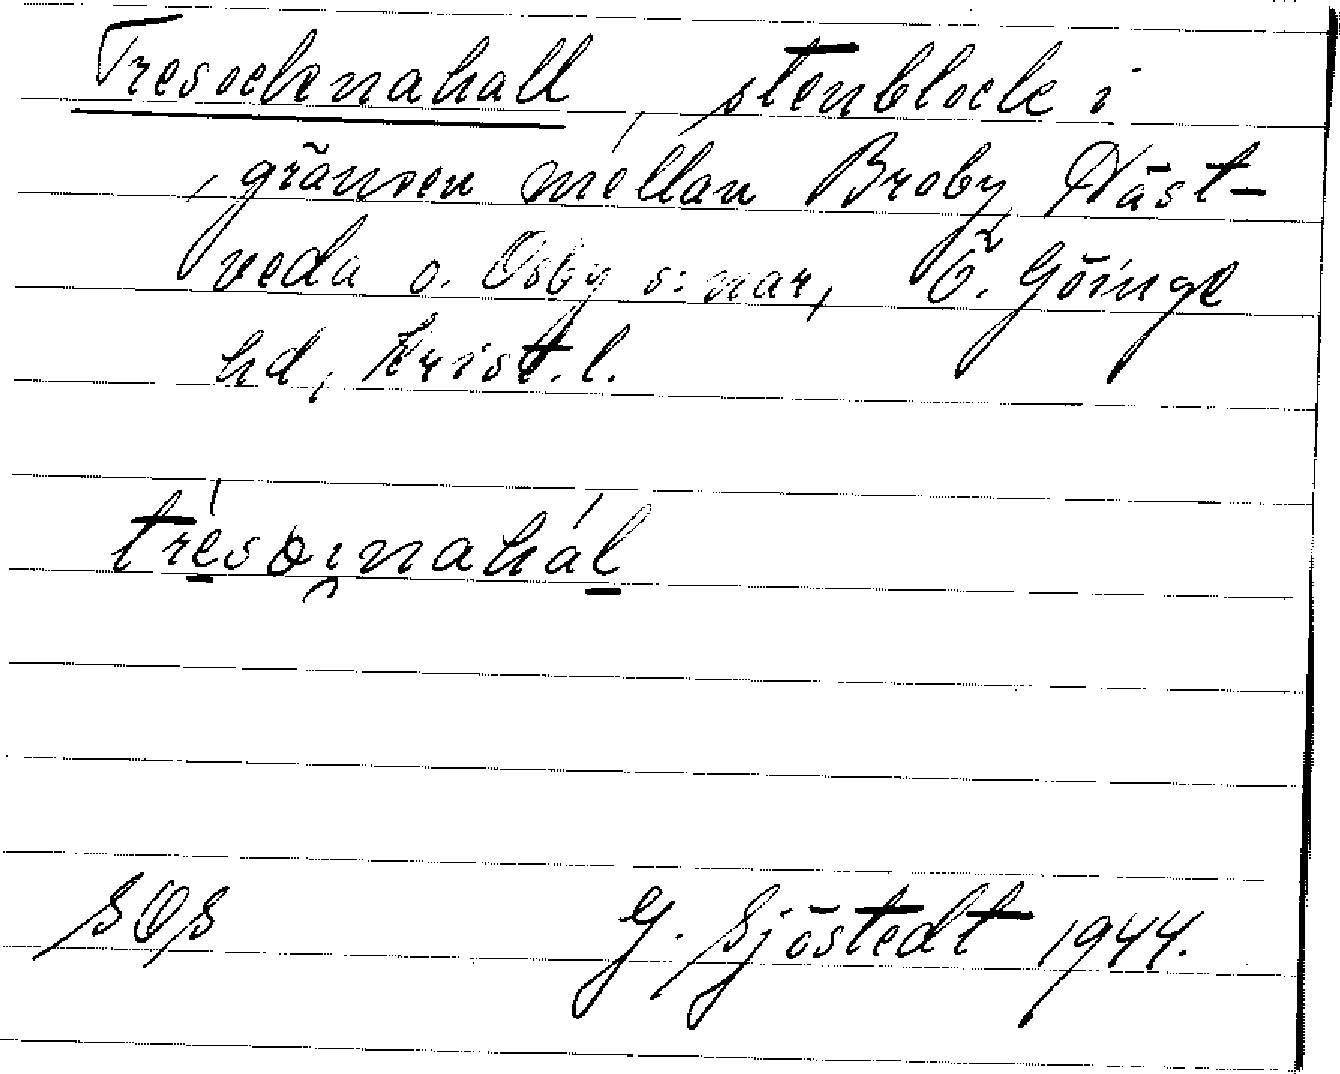 Tresocknahall, stenblock i
gränsen mellan Broby, Näst-
veda o. Osby s:nar, Ö. Göinge
hd, Krist.l.
SOS G. Sjöstedt 1944.